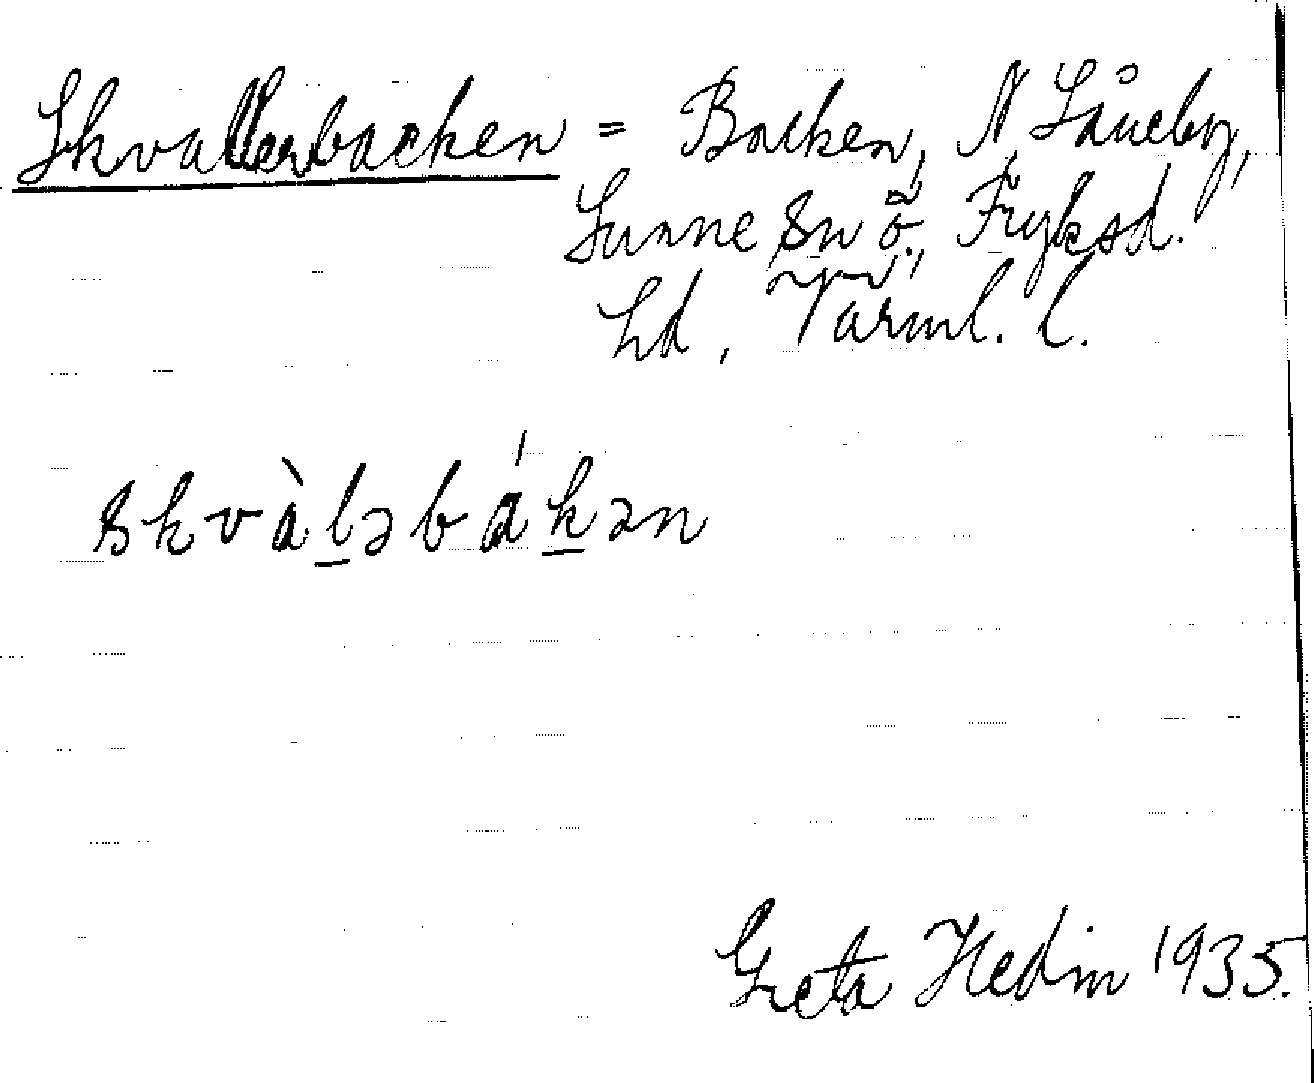 Skvallerbacken = Backen, N Såneby,
Sunne sn ö., Fryksd.
hd, Värml. l.
skvàl̲əbák̲ən
Greta Hedin 1935.